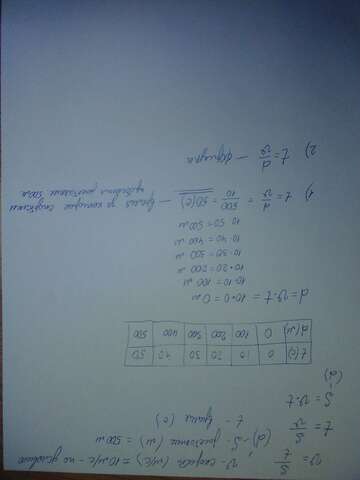 v = S/t   v - скорость (м/с) = 10 м/с - по условию
t = S/v   (d) - S - расстояние (м) = 500 м
S = v·t   t - время (с)
(d)
t(с) 0 10 20 30 40 50
d(м) 0 100 200 300 400 500
d = v·t = 10·0 = 0 м
10·10 = 100 м
10·20 = 200 м
10·30 = 300 м
10·40 = 400 м
10·50 = 500 м
1) t = d/v = 500/10 = 50 (с) - время за которое спортсмен
расстояние 500 м
2) t = d/v - формула